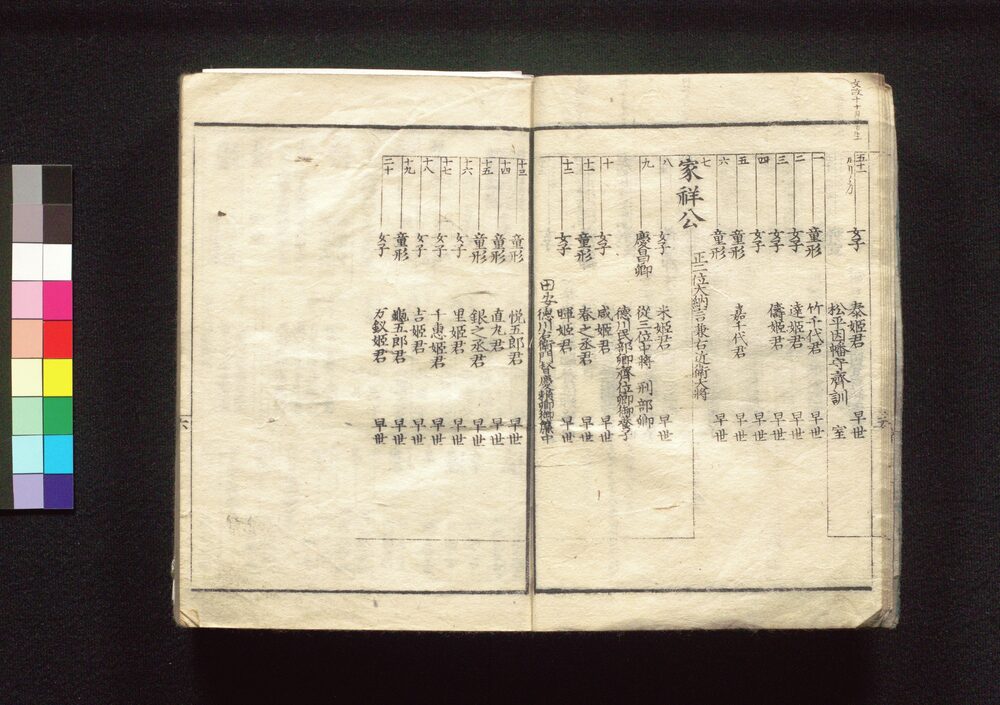 五十一
女子
泰姫君 早世
松平因幡守齊訓 室
一
童形
竹千代君 早世
二
女子
達姫君 早世
三
女子
儔姫君 早世
四
女子
早世
五
童形
嘉千代君 早世
六
童形
早世
七
家祥公
正二位大納言兼右近衛大将
八
女子
米姫君 早世
九
慶昌卿
従三位中将 刑部卿
徳川民部卿齊位卿御養子
十
女子
咸姫君 早世
十一
童形
春之丞君 早世
十二
女子
暉姫君 早世
田安徳川右衛門督慶頼卿御簾中
十三
童形
悦五郎君 早世
十四
童形
直丸君 早世
十五
童形
銀之丞君 早世
十六
女子
里姫君 早世
十七
女子
千恵姫君 早世
十八
女子
吉姫君 早世
十九
童形
亀五郎君 早世
二十
女子
万釵姫君 早世
六